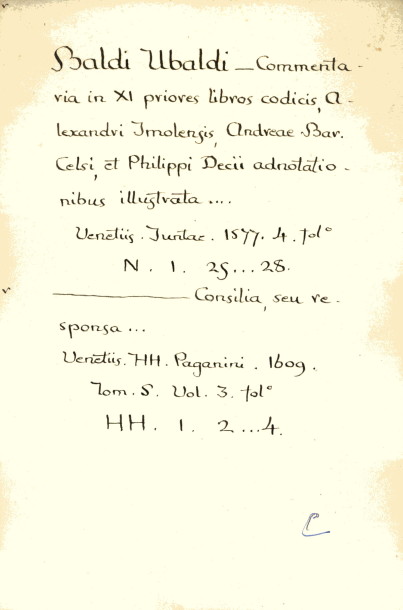 Baldi Ubaldi — Commenta-
ria in XI priores libros codicis, A-
lexandri Imolensis, Andreae Bar.
Celsi, et Philippi Decii adnotatio-
nibus illustrata ....
Venetiis. Juntae. 1577. 4. fol°
N. 1. 25...28.
——— Consilia, seu re-
sponsa ...
Venetiis. HH. Paganini. 1609.
Tom. 5. Vol. 3. fol°
HH. 1. 2...4.